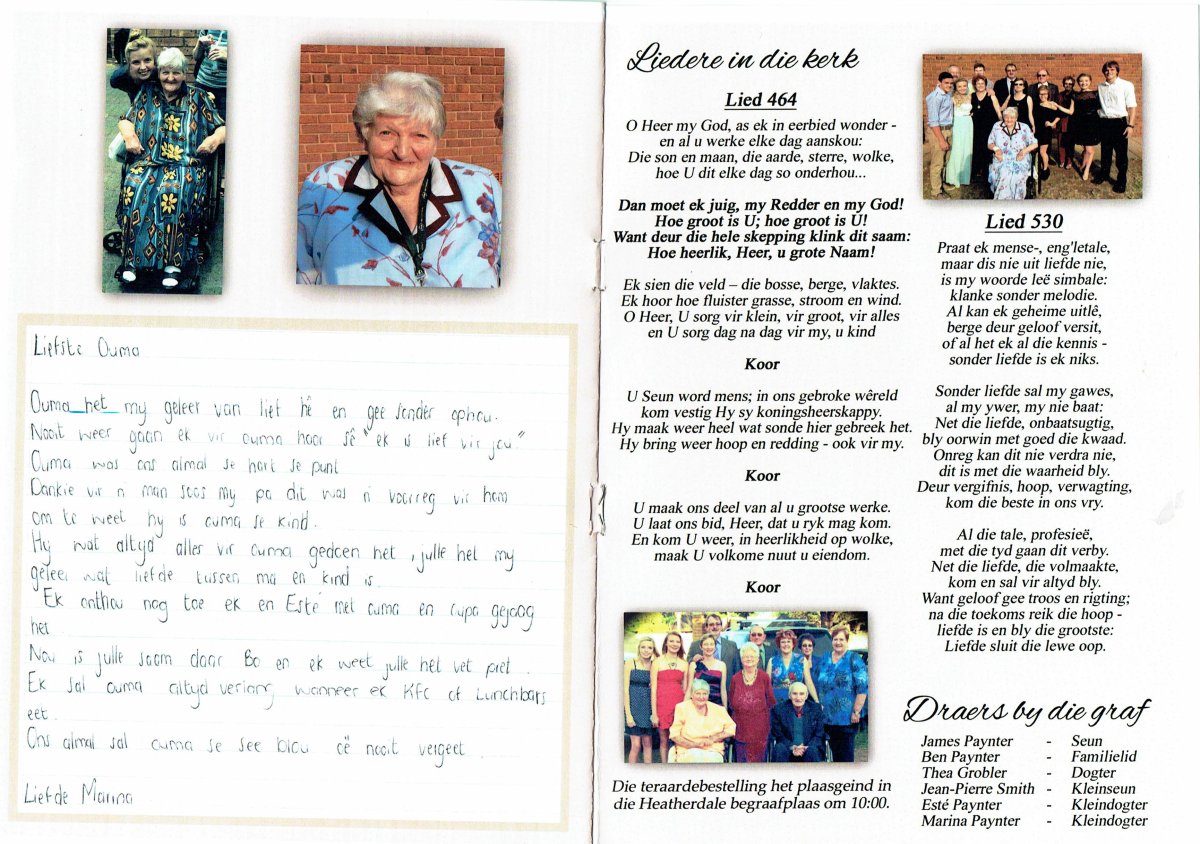 Liefste Ouma
Ouma het my geleer van lief hê en gee sonder ophou.
Nooit weer gaan ek vir ouma hoor sê "ek is lief vir jou"
Ouma was ons almal se hart se punt
Dankie vir n man soos my pa dit was n voorreg vir hom
om te weet hy is ouma se kind.
Hy wat altyd alles vir ouma gedoen het, julle het my
geleer wat liefde tussen ma en kind is.
Ek onthou nog toe ek en Esté met ouma en oupa gejaag
het
Nou is julle saam daar Bo en ek weet julle het vet pret.
Ek sal ouma altyd verlang wanneer ek KFC of Lunchbars
eet.
Ons almal sal ouma se see blou oë nooit vergeet.
Liefde Marina
Liedere in die kerk
Lied 464
O Heer my God, as ek in eerbied wonder -
en al u werke elke dag aanskou:
Die son en maan, die aarde, sterre, wolke,
hoe U dit elke dag so onderhou...
Dan moet ek juig, my Redder en my God!
Hoe groot is U; hoe groot is U!
Want deur die hele skepping klink dit saam:
Hoe heerlik, Heer, u grote Naam!
Ek sien die veld – die bosse, berge, vlaktes.
Ek hoor hoe fluister grasse, stroom en wind.
O Heer, U sorg vir klein, vir groot, vir alles
en U sorg dag na dag vir my, u kind
Koor
U Seun word mens; in ons gebroke wêreld
kom vestig Hy sy koningsheerskappy.
Hy maak weer heel wat sonde hier gebreek het.
Hy bring weer hoop en redding - ook vir my.
Koor
U maak ons deel van al u grootse werke.
U laat ons bid, Heer, dat u ryk mag kom.
En kom U weer, in heerlikheid op wolke,
maak U volkome nuut u eiendom.
Koor
Die teraardebestelling het plaasgeind in
die Heatherdale begraafplaas om 10:00.
Lied 530
Praat ek mense-, eng'letale,
maar dis nie uit liefde nie,
is my woorde leë simbale:
klanke sonder melodie.
Al kan ek geheime uitlê,
berge deur geloof versit,
of al het ek al die kennis -
sonder liefde is ek niks.
Sonder liefde sal my gawes,
al my ywer, my nie baat:
Net die liefde, onbaatsugtig,
bly oorwin met goed die kwaad.
Onreg kan dit nie verdra nie,
dit is met die waarheid bly.
Deur vergifnis, hoop, verwagting,
kom die beste in ons vry.
Al die tale, profesieë,
met die tyd gaan dit verby.
Net die liefde, die volmaakte,
kom en sal vir altyd bly.
Want geloof gee troos en rigting;
na die toekoms reik die hoop -
liefde is en bly die grootste:
Liefde sluit die lewe oop.
Draers by die graf
James Paynter - Seun
Ben Paynter - Familielid
Thea Grobler - Dogter
Jean-Pierre Smith - Kleinseun
Esté Paynter - Kleindogter
Marina Paynter - Kleindogter